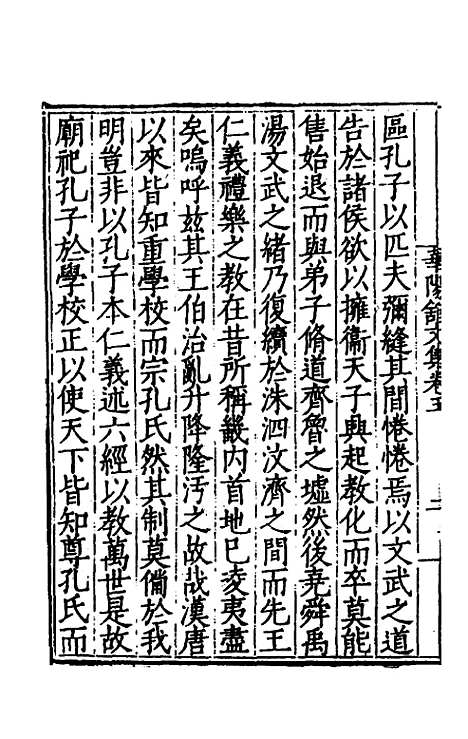 區孔子以匹夫彌縫其間惓惓焉以文武之道
告於諸侯欲以擁衞天子興起教化而卒莫能
售始退而與弟子脩道齊魯之墟然後堯舜禹
湯文武之緒乃復續於洙泗汶濟之間而先王
仁義禮樂之教在昔所稱畿内首地已凌夷盡
矣嗚呼兹其王伯治亂升降隆汚之故哉漢唐
以來皆知重學校而宗孔氏然其制莫備於我
明豈非以孔子本仁義述六經以教萬世是故
廟祀孔子於學校正以使天下皆知尊孔氏而
華陽館文集卷五